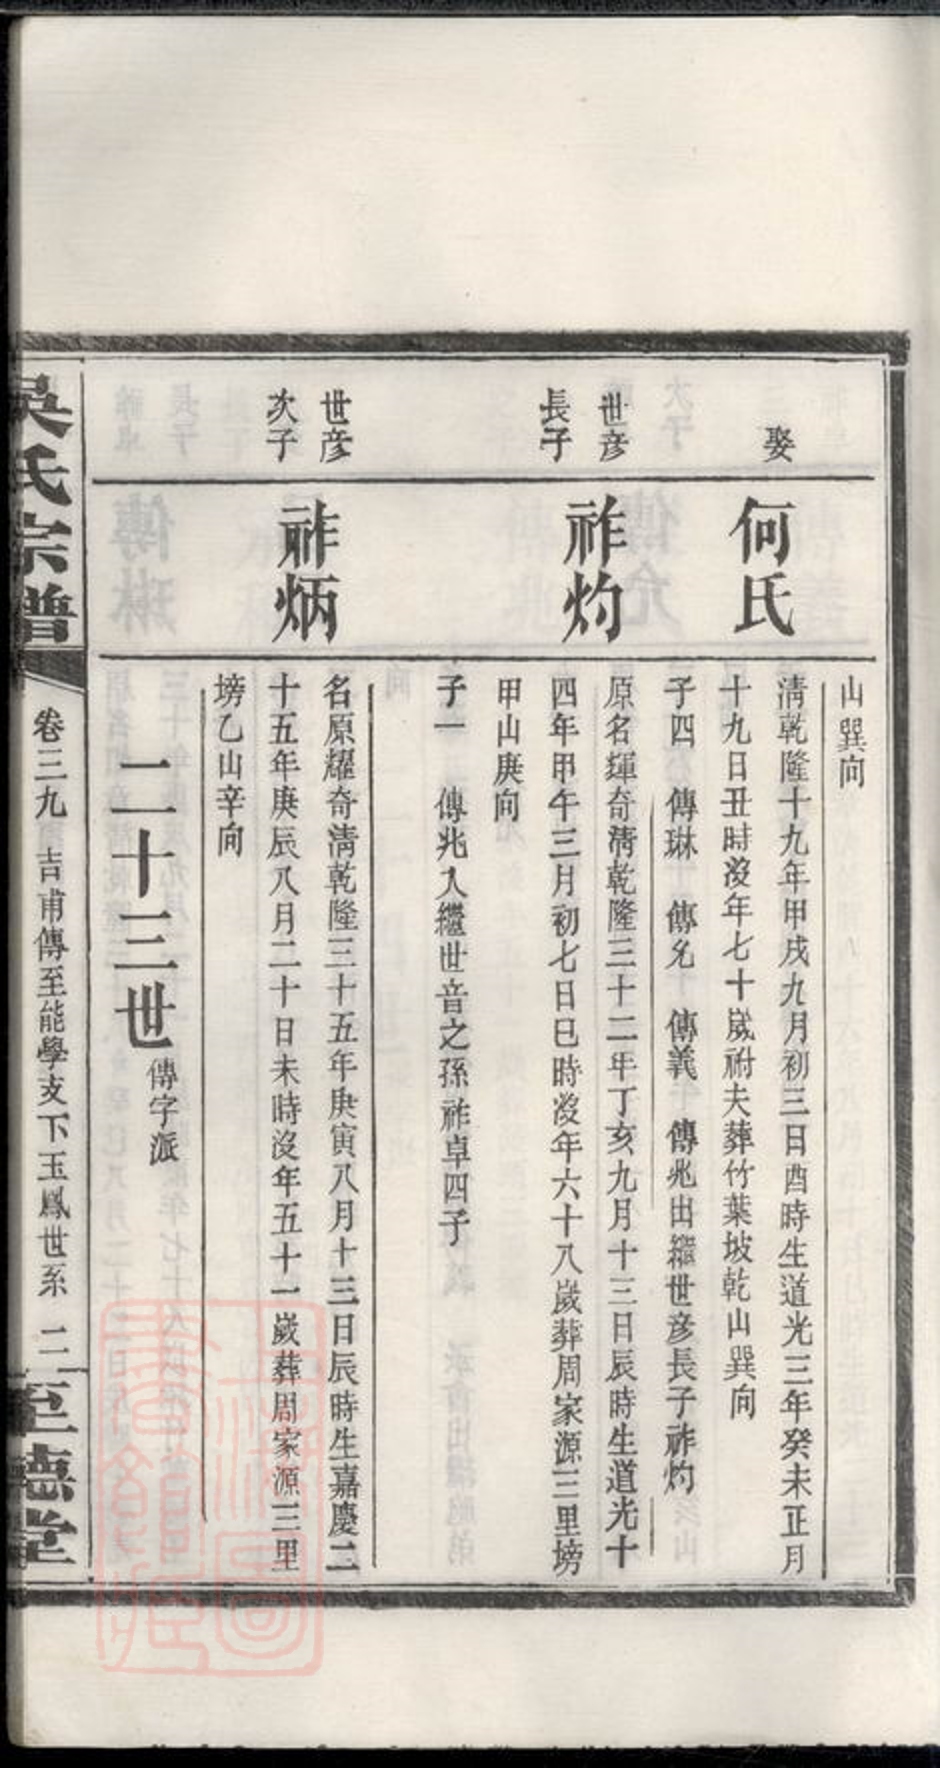 山巽向
娶
何氏
淸乾隆十九年甲戌九月初三日酉時生道光三年癸未正月
十九日丑時沒年七十嵗祔夫葬竹葉坡乾山巽向
子四　傳琳　傳允　傳義　傳兆出繼世彥長子祚灼
世彥
長子
祚灼
原名煇奇淸乾隆三十二年丁亥九月十三日辰時生道光十
四年甲午三月初七日巳時沒年六十八嵗葬周家源三里塝
甲山庚向
子一　傳兆入繼世音之孫祚卓四子
世彥
次子
祚炳
名原耀奇淸乾隆三十五年庚寅八月十三日辰時生嘉慶二
十五年庚辰八月二十日未時沒年五十一嵗葬周家源三里
塝乙山辛向
二十三世 傳字派
吳氏宗譜
卷三九　吉甫傳至能學支下玉鳳世系　二
至德堂